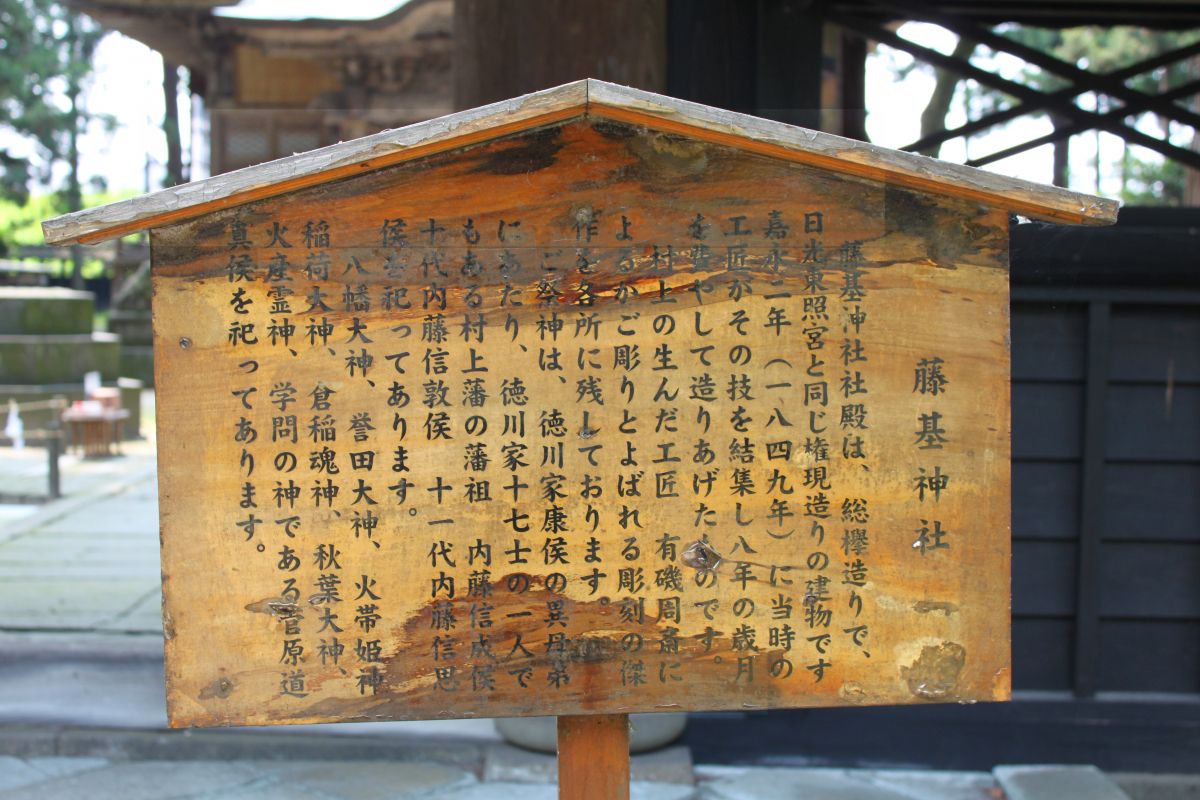 藤基神社
藤基神社社殿は、総欅造りで、
日光東照宮と同じ権現造りの建物です
嘉永二年（一八四九年）に当時の
工匠がその技を結集し八年の歳月
を費やして造りあげたものです。
村上の生んだ工匠　有磯周斎に
よるかご彫りとよばれる彫刻の傑
作を各所に残しております。
ご祭神は、徳川家康侯の異母弟
にあたり、徳川家十七士の一人で
もある村上藩の藩祖　内藤信成侯
十代内藤信敦侯　十一代内藤信思
侯を祀ってあります。
八幡大神、誉田大神、火帯姫神
稲荷大神、倉稲魂神、秋葉大神、
火産霊神、学問の神である菅原道
真侯を祀ってあります。